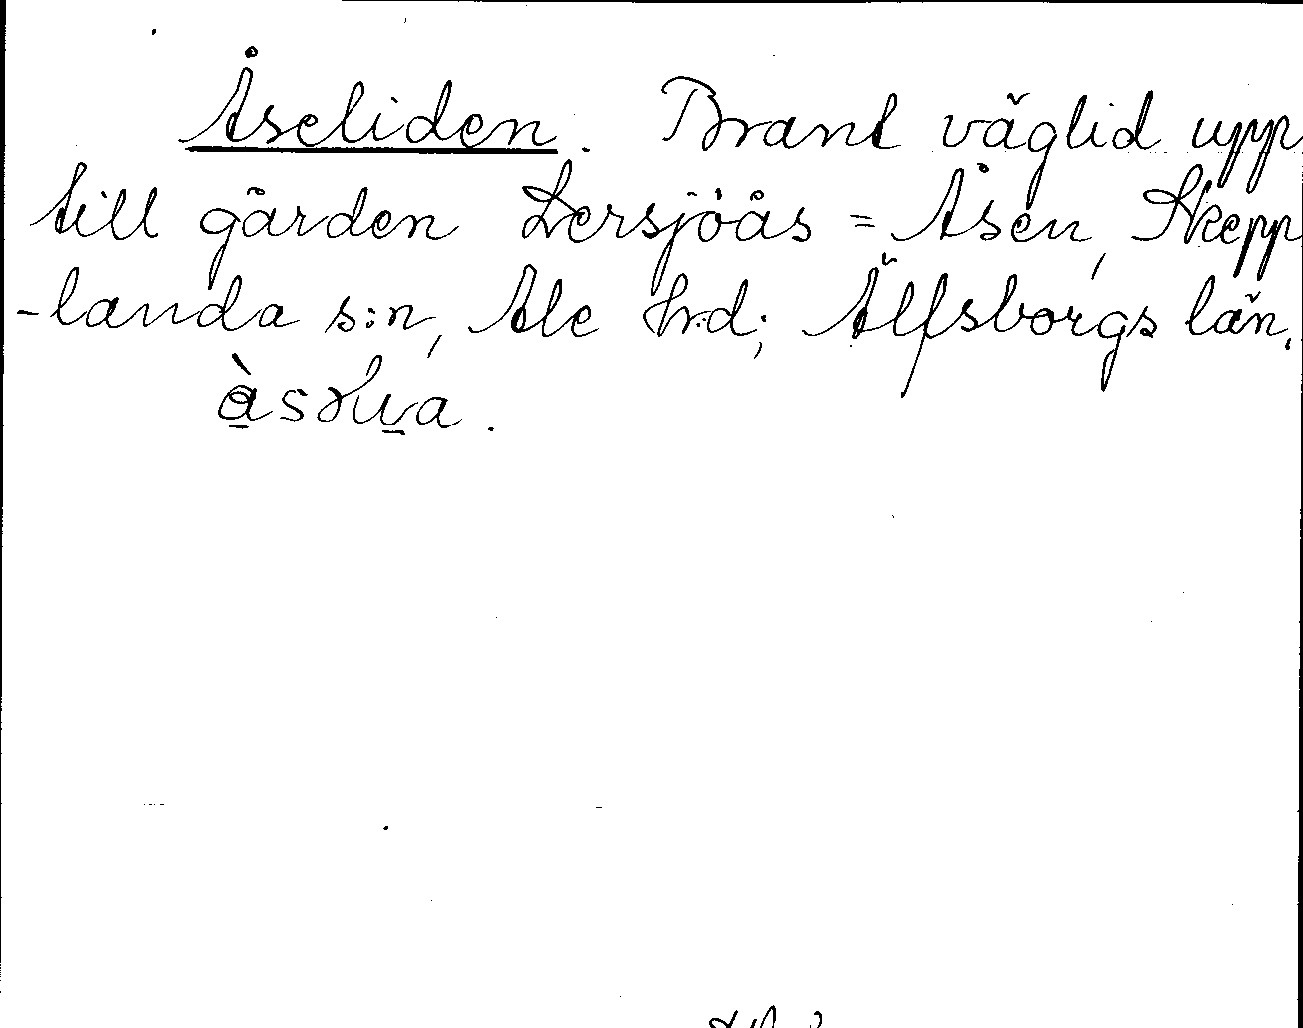 Åseliden. Brant väglid upp
till gården Lersjöås = Åsen, Skepp
-landa s:n, Ale h:d; Älfsborgs län.